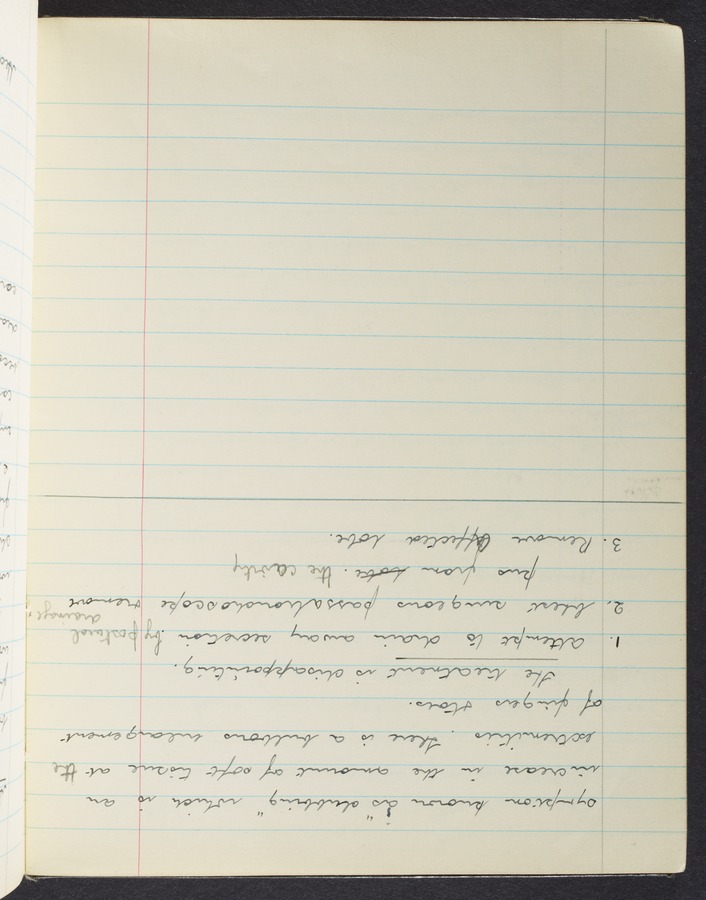 symptom known as "clubbing" which is an
increase in the amount of soft tissue at the
extremities. There is a bulbous enlargement
of fingers & toes.
The treatment is disappointing.
1. Attempt to drain away secretion by postural drainage.
2. chest surgeons pass a bronchoscope & remove
pus from the cavity
3. Remove affected lobe.